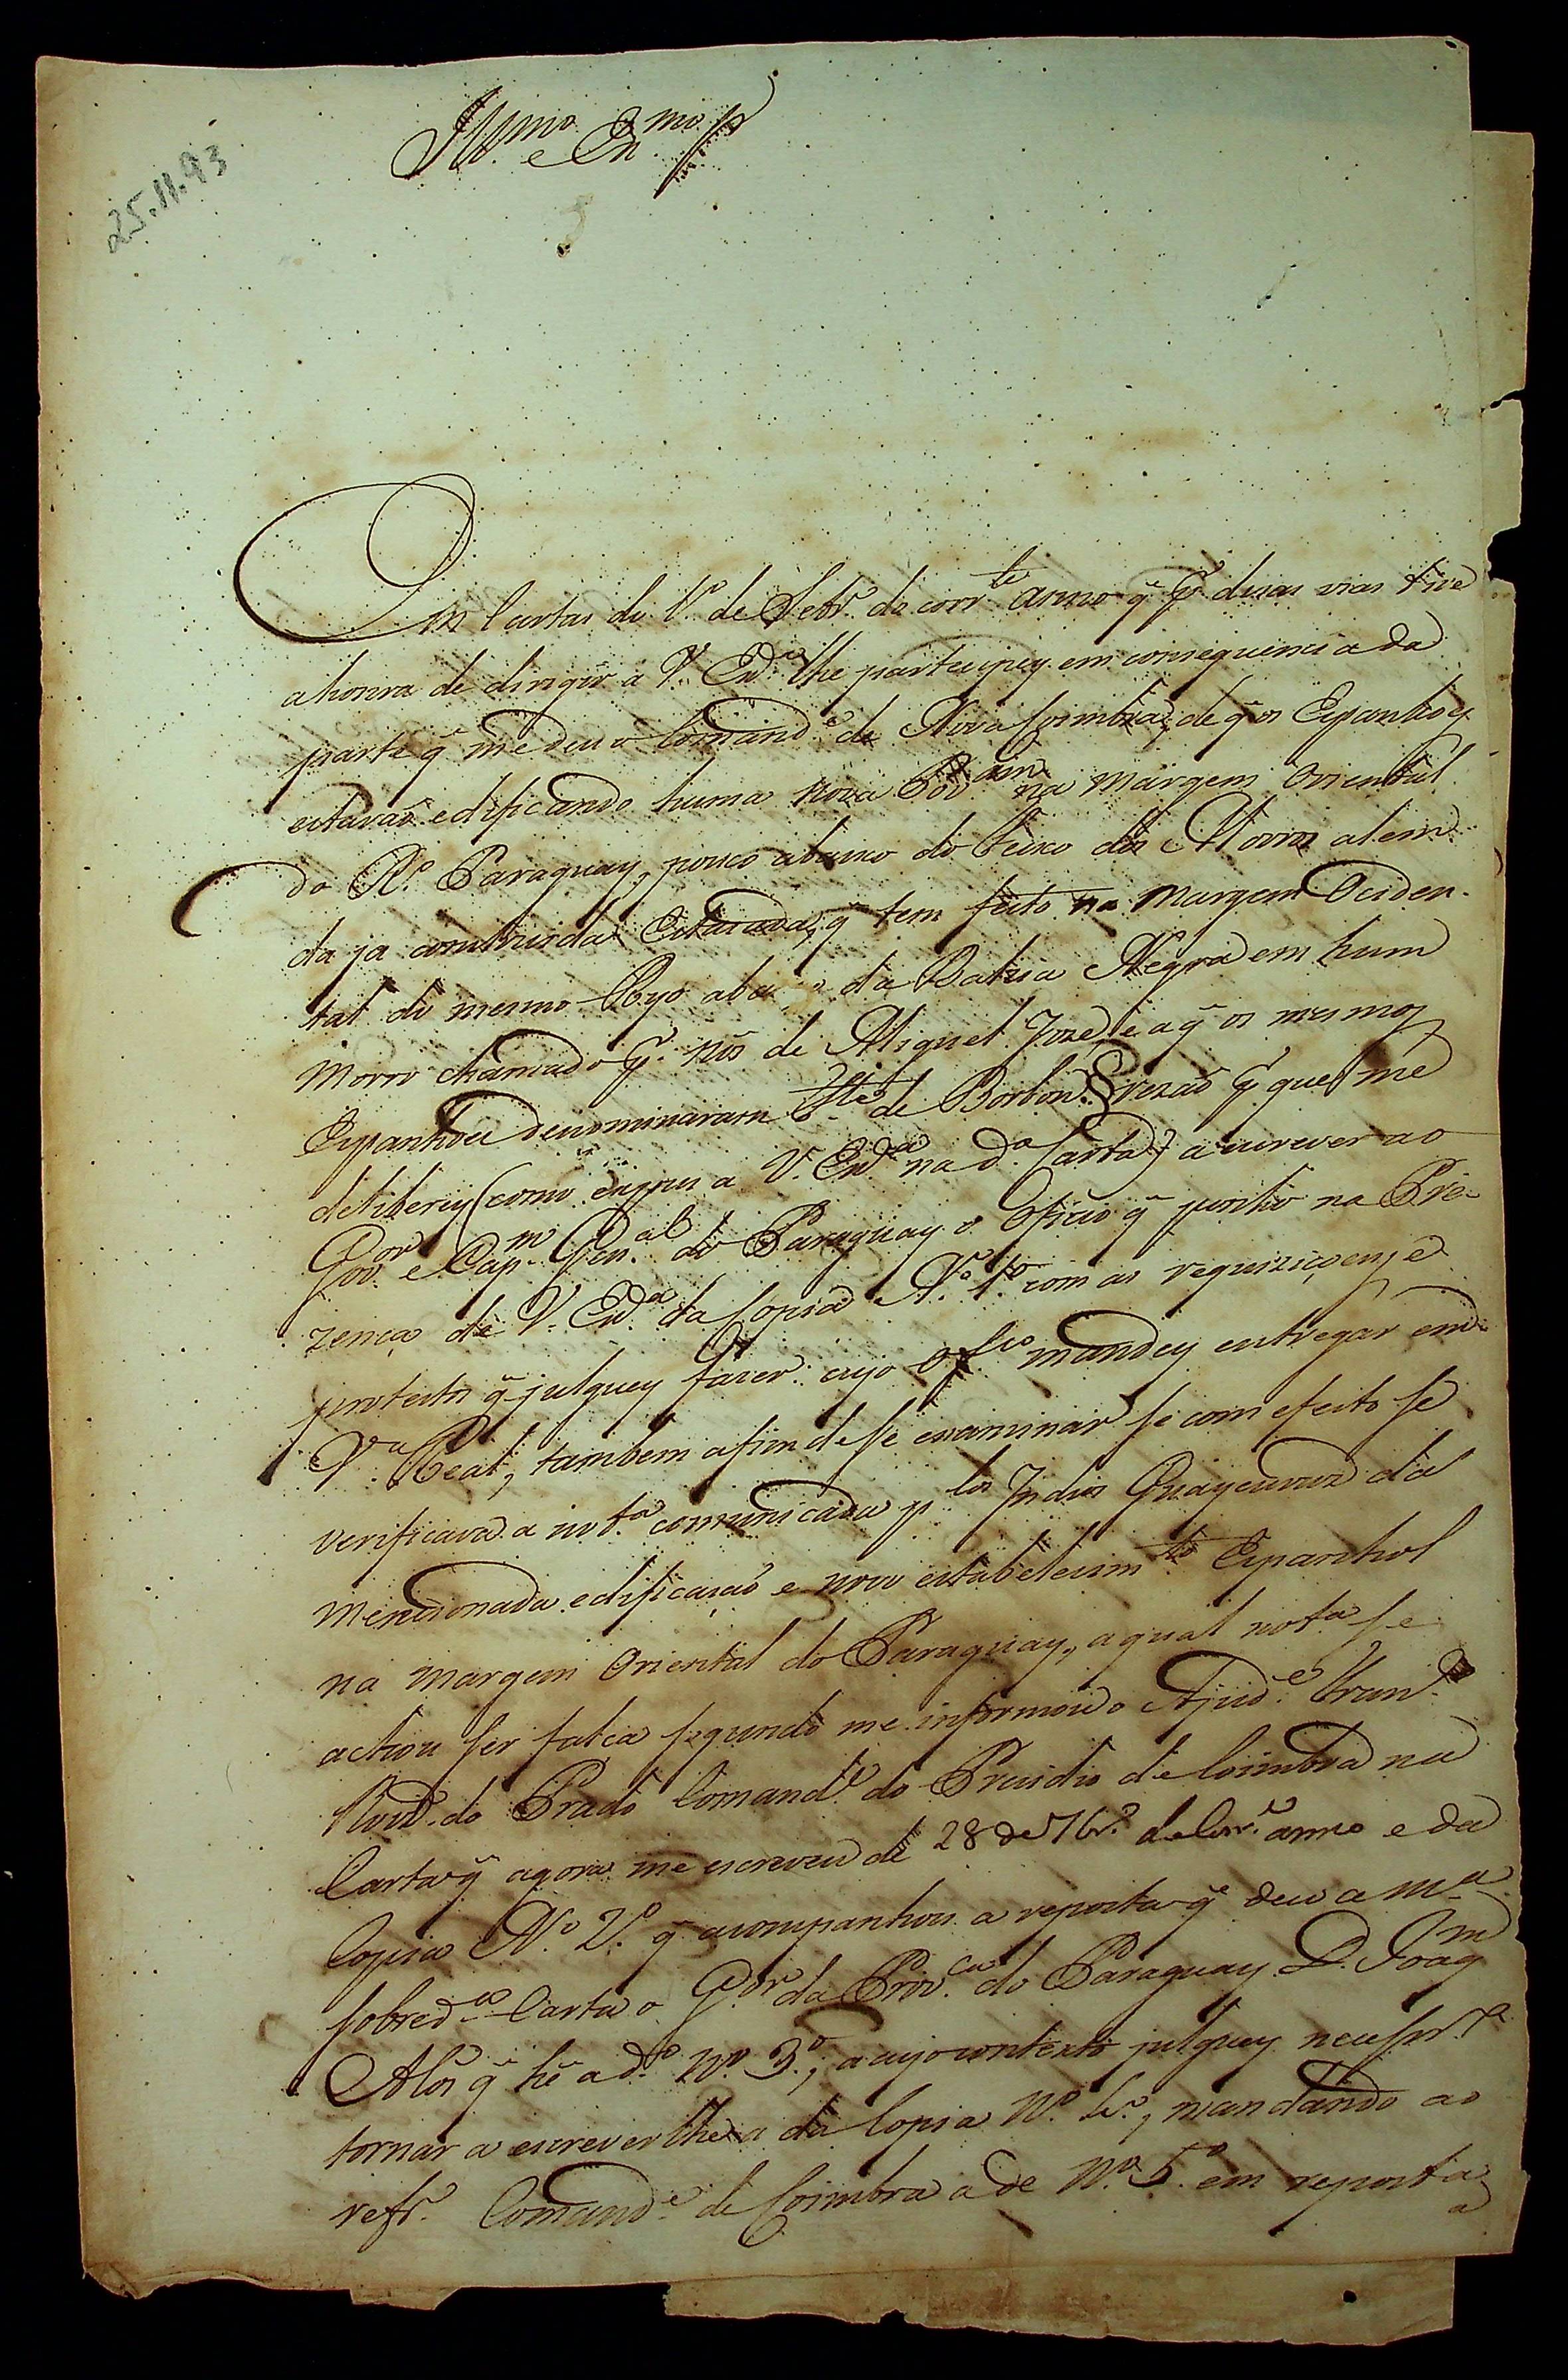 Illmo. e Exmo. Sr
25.11.93
Em Cartas do 1º de Setr.º do corr.te anno q̃ p.r duas vias tive
a honra de dirigir a V. Exª. lhe participey em consequencia da
parte q̃ me deu o Comand.e de Nova Coimbra, de q̃ os Espanhoes
estavaõ edificando huma nova Pov.am na margem Oriental
do R.º Paraguay, pouco abaixo do Feixo dos Morros alem
da ja construida Estacada, q̃ tem feito na margem Ociden-
tal do mesmo Ryo abaixo da Bahia Negra em hum
Morro chamado p.r nós de Miguel Joze, e a q̃ os mesmos
Espanhoes denominaram Fte. de Borbon: rezaõ p.r que me
deliberey (como expus a V. Exª. na d.ª Carta) a escrever ao
Gov.or e Cap.m Gen.al do Paraguay o Oficio q̃ ponho na Pre-
zença de V. Exª. da Copia N.º 1.º com as requiziçoens, e
protestos q̃ julguey fazer: cujo Of.cio mandey entregar em
V.ª Real, tambem afim de se examinar se com efeito se
verificava a not.ª comunicada p.los Indios Guaycuruz da
mencionada edificaçaõ e novo estabelecim.to Espanhol
na margem Oriental do Paraguay, a qual not.ª se
achou ser falça segundo me informou o Ajud.e Fran.co
Roiz. do Prado Comand.e do Prezidio de Coimbra na
Carta q̃ agora me escreveu de 28 de 7br.º do Corr.e anno e da
Copia N.º 2.º q̃ acompanhou a reposta q̃ deu a m.ª
sobred.ª Carta o G.or da Prov.ca do Paraguay D. Joaq.m
Alós q̃ he a d.º N.º 3.º, a cujo contexto julguey necessr.º
tornar a escrever lhe a da Copia N.º 4.º, mandando ao
refr.º Comand.e de Coimbra a de N.º 5.º em reposta
a